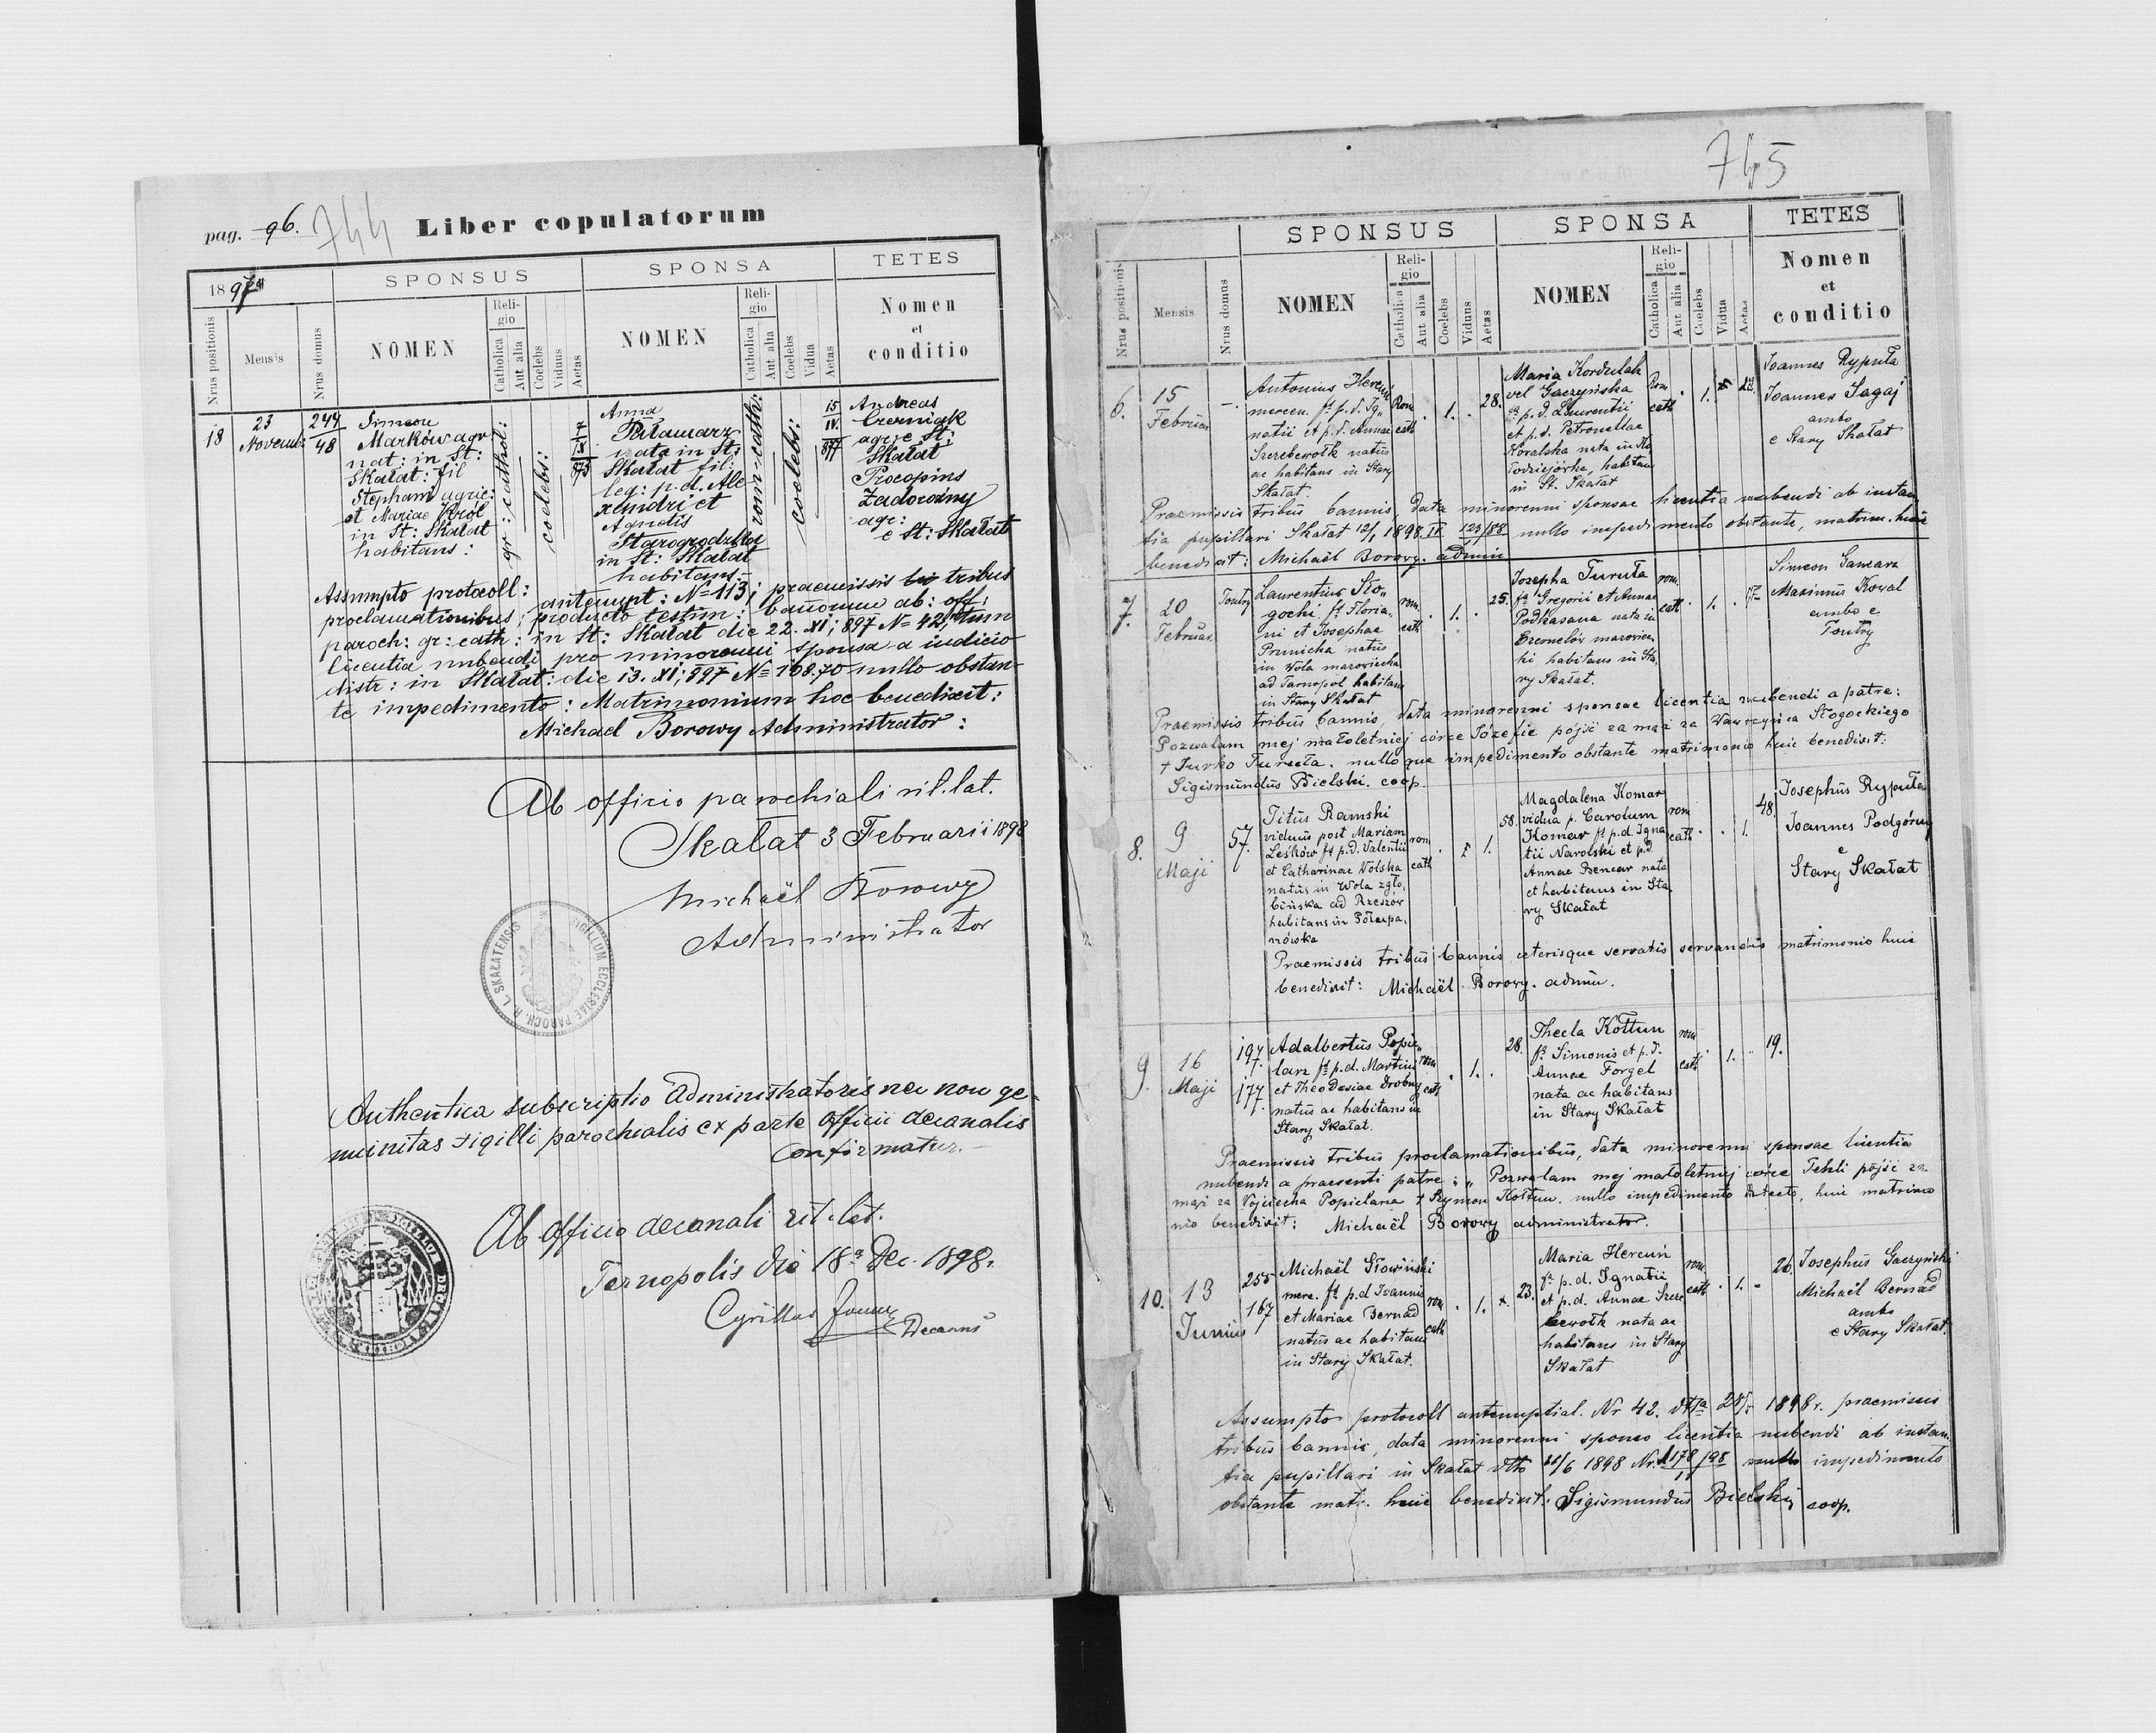 pag. 96. 744 Liber copulatorum
1897
SPONSUS SPONSA TETES
Nrus positionis Mensis Nrus domus NOMEN Religio Catholica Aut alia Coelebs Viduus Aetas NOMEN Religio Catholica Aut alia Coelebs Vidua Aetas Nomen et conditio
18
23
Novemb:
244
48
Simeon
Marków agr
nat: in St:
Skałat: fil
Stephani agric:
et Mariae Król
in St: Skałat
habitans:
gr: cathol:
coelebs:
7
IX
873
Anna
Pałamarz
nata in St:
Skałat fil:
leg: p.d. Ale
xandri et
Agnetis
Starogrodzka
in St: Skałat
habitans:
rom-cath:
coelebs:
15
IV.
877
Andreas
Czerniak
agr: e St:
Skałat
Procopius
Zadorożny
agr:
e St: Skałat
Assumpto protocoll: antenupt: N=113; praemissis tribus
proclamationibus; producto testim: bannorum ab: off:
paroch: gr: cath: in St: Skałat die 22. XI; 897 N= 42, tum
licentia nubendi pro minorenni sponsa a iudicio
distr: in Skałat: die 13. XI; 897 N= 108.70 nullo obstan
te impedimento: Matrimonium hoc benedixit:
Michael Borowy Administrator:
Ab officio parochiali rit. lat.
Skałat 3 Februarii 1898
Michaël Borowy
Administrator
SIGILLUM ECCLESIAE PAROCH. R. L. SKAŁATENSIS
Authentica subscriptio Administratoris nec non ge-
nuinitas sigilli parochialis ex parte Officii decanalis
confirmatur.-
Ab officio decanali rit. lat.
Tarnopolis die 18a Dec. 1898.
Cyrillus
Decanus
745
SPONSUS SPONSA TETES
Nrus positionis Mensis Nrus domus NOMEN Religio Catholica Aut alia Coelebs Viduus Aetas NOMEN Religio Catholica Aut alia Coelebs Vidua Aetas Nomen et conditio
6.
15
Februar
Antonius Hercuń
mercen. fs p.d. Ig„
natii et p.d. Annae
Szerebewołk natus
ac habitans in Stary
Skałat.
Rom
cath
1.
28.
Maria Kordulak
vel Gaczyńska
fa p.d. Laurentii
et p.d. Petronellae
Kowalska nata in Ko
łodziejówka, habitans
in St. Skałat
Rom
cath
1.
Joannes Rypuła
Joannes Sagaj
ambo
e Stary Skałat
Praemissis tribus bannis, data minorenni sponsae licentia nubendi ab instan
tia pupillari Skałat 12/1 1898. IV 123/88 nullo impedimento obstante, matrim. huic
benedixit: Michaël Borowy. admin
7.
20
Februar.
Toutry
Laurentius Sto„
gocki fs Floria„
ni et Josephae
Prunicha natus
in Wola mazowiecka
ad Tarnopol habitans
in Stary Skałat
rom.
cath
1.
25.
Josepha Turuła
fa Gregorii et Annae
Podkasana nata in
Czernelów mazowiec
ki habitans in Sta
ry Skałat.
rom.
cath
1.
17
Simeon Samcarz
Maximus Kowal
ambo e
Toutry
Praemissis tribus bannis, data minorenni sponsae licentia nubendi a patre:
Pozwalam mej małoletniej córce Józefie pójść za mąż za Wawrzyńca Stogockiego
† Jurko Turuła. nulloque impedimento obstante matrimonio huic benedixit:
Sigismundus Bielski. coop.
8.
9
Maji
57.
Titus Ramski
viduus post Mariam
Leśków fs p.d. Valentii
et Catharinae Wolska
natus in Wola zgło„
bińska ad Rzeszów
habitans in Połupa„
nówka
rom
cath
1.
58.
Magdalena Komar
vidua p. Carolum
Komar fa p.d. Igna
tii Narolski et p.d
Annae Bencar nata
et habitans in Sta
ry Skałat
rom
cath
1.
48.
Josephus Rypuła
Joannes Podgórny
e
Stary Skałat
Praemissis tribus bannis ceterisque servatis servandis matrimonio huic
benedixit: Michaël Borowy. admin.
9.
16
Maji
197.
177.
Adalbertus Popie„
larz fs p.d. Martini
et Theodosiae Drobny
natus ac habitans in
Stary Skałat.
rom
cath
1.
28.
Thecla Kottun
fa Simonis et p.d.
Annae Forgel
nata ac habitans
in Stary Skałat
rom
cath
1.
19.
Praemissis tribus proclamationibus, data minorenni sponsae licentia
nubendi a praesenti patre: „Pozwalam mej małoletniej córce Tekli pójść za
mąż za Wojciecha Popielarza † Szymon Kottun. nullo impedimento detecto, huic matrimo
nio benedixit: Michaël Borowy administrator.
10.
13
Junius
255
167
Michaël Słowiński
merc. fs p.d Joannis
et Mariae Bernad
natus ac habitans
in Stary Skałat.
rom.
cath
1.
23.
Maria Hercuń
fa p.d. Ignatii
et p.d. Annae Szere
bewołk nata ac
habitans in Stary
Skałat
rom.
cath
1.
26.
Josephus Gaczyński
Michaël Bernad
ambo
e Stary Skałat.
Assumpto protocoll antenuptial. Nr 42. dtta 28/5 1898r. praemissis
tribus bannis, data minorenni sponso licentia nubendi ab instan
tia pupillari in Skałat dtto /6 1898 Nr. 1178/98 nullo impedimento
obstante matr. huic benedixit: Sigismundus Bielski coop.